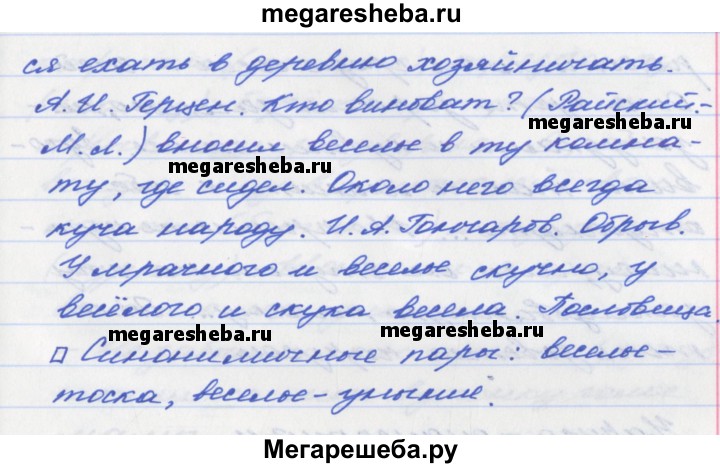 megaresheba.ru
ся ехать в деревню хозяйничать.
А.И. Герцен. Кто виноват? (Райский.-
megaresheba.ru
М.Л.) вносил веселье в ту комна-
megaresheba.ru
ту, где сидел. Около него всегда
куча народу. И.А. Гончаров. Обрыв.
У мрачного и веселье скучно, у
весёлого и скука весела. Пословица.
megaresheba.ru megaresheba.ru
Синонимичные пары: веселье-
тоска, веселье-уныние.
Мегарешеба.ру